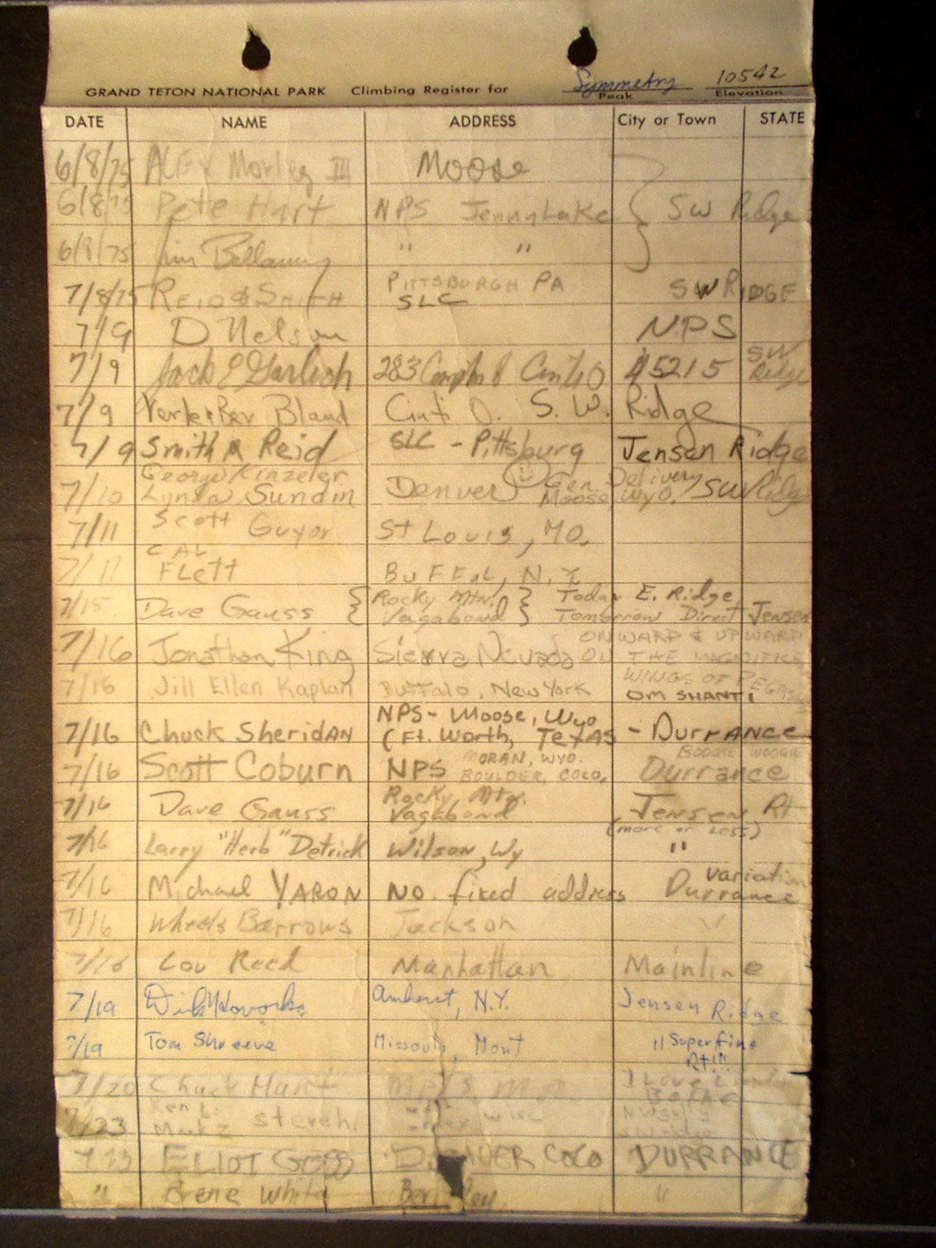 GRAND TETON NATIONAL PARK Climbing Register for Symmetry Peak 10542 Elevation
DATE NAME ADDRESS City or Town STATE
6/8/75 Morley III Moose
6/8/75 Pete Hart NPS Jenny Lake } SW Ridge
6/8/75 Jim Bellamy " "
7/8/75 REID & SMITH PITTSBURGH PA SLC SW RIDGE
7/9 D Nelson NPS
7/9 Jack E Garlich 283 Cinti O 45215 SW Ridge
7/9 Bland Cinti O. S.W. Ridge
7/9 Smith & Reid SLC - Pittsburg Jensen Ridge
George Kinzeler
7/10 Lynda Sundin Denver Gen Delivery Moose, Wyo. SW Ridge
7/11 Scott Guyor St Louis, MO.
7/11 CAL FLett BuFFal, N.Y.
7/15 Dave Gauss { Rocky Mtn. Vagabond } Today E. Ridge, Tomorrow Direct Jensen
7/16 Jonathan King Sierra Nevada ONWARD & UPWARD ON THE MAGNIFICA
7/16 Jill Ellen Kaplan Buffalo, New York WINGS OF PEGASU OM SHANTI
7/16 Chuck SheridAN NPS- Moose, Wyo (Ft. Worth, TexAS - DurrANce
7/16 Scott Coburn NPS MORAN, WYO. BOULDER, COLO, BOOGIE WOOGIE Durrance
7/16 Dave Gauss Rocky Mtn. Vagabond Jensen Rt
(more or less)
7/16 Larry "Herb" Detrick Wilson, Wy "
7/16 Michael YARON NO. fixed address variation Durrance
7/16 Wheels Barrows Jackson
7/16 Lou Reed Manhattan Mainline
7/19 Amherst, N.Y. Jensen Ridge
7/19 Tom Shreeve Missoula, Mont " Superfine Rt!!!
7/20 Chuck I Love
7/23
7/23 ELIOT GOSS DENVER COLO DURRANCE
" White "